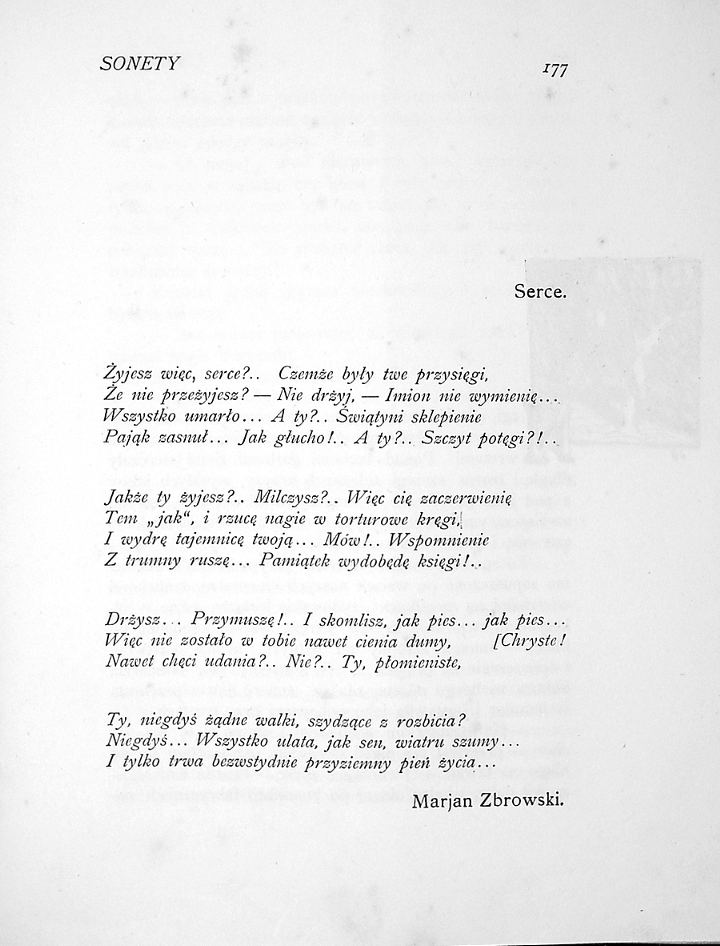 SONETY
177
Serce.
Żyjesz więc, serce?.. Czemże były twe przysięgi,
Że nie przeżyjesz? — Nie drżyj, — Imion nie wymienię...
Wszystko umarło... A ty?.. Świątyni sklepienie
Pająk zasnuł... Jak głucho!.. A ty?.. Szczyt potęgi?!..
Jakże ty żyjesz?.. Milczysz?.. Więc cię zaczerwienię
Tem „jak“, i rzucę nagie w torturowe kręgi,
I wydrę tajemnicę twoją... Mów!.. Wspomnienie
Z trumny ruszę... Pamiątek wydobędę księgi!..
Drżysz... Przymuszę!.. I skomlisz, jak pies... jak pies...
Więc nie zostało w tobie nawet cienia dumy, [Chryste!
Nawet chęci udania?.. Nie?.. Ty, płomieniste,
Ty, niegdyś żądne walki, szydzące z rozbicia?
Niegdyś... Wszystko ulata, jak sen, wiatru szumy...
I tylko trwa bezwstydnie przyziemny pień życia...
Marjan Zbrowski.